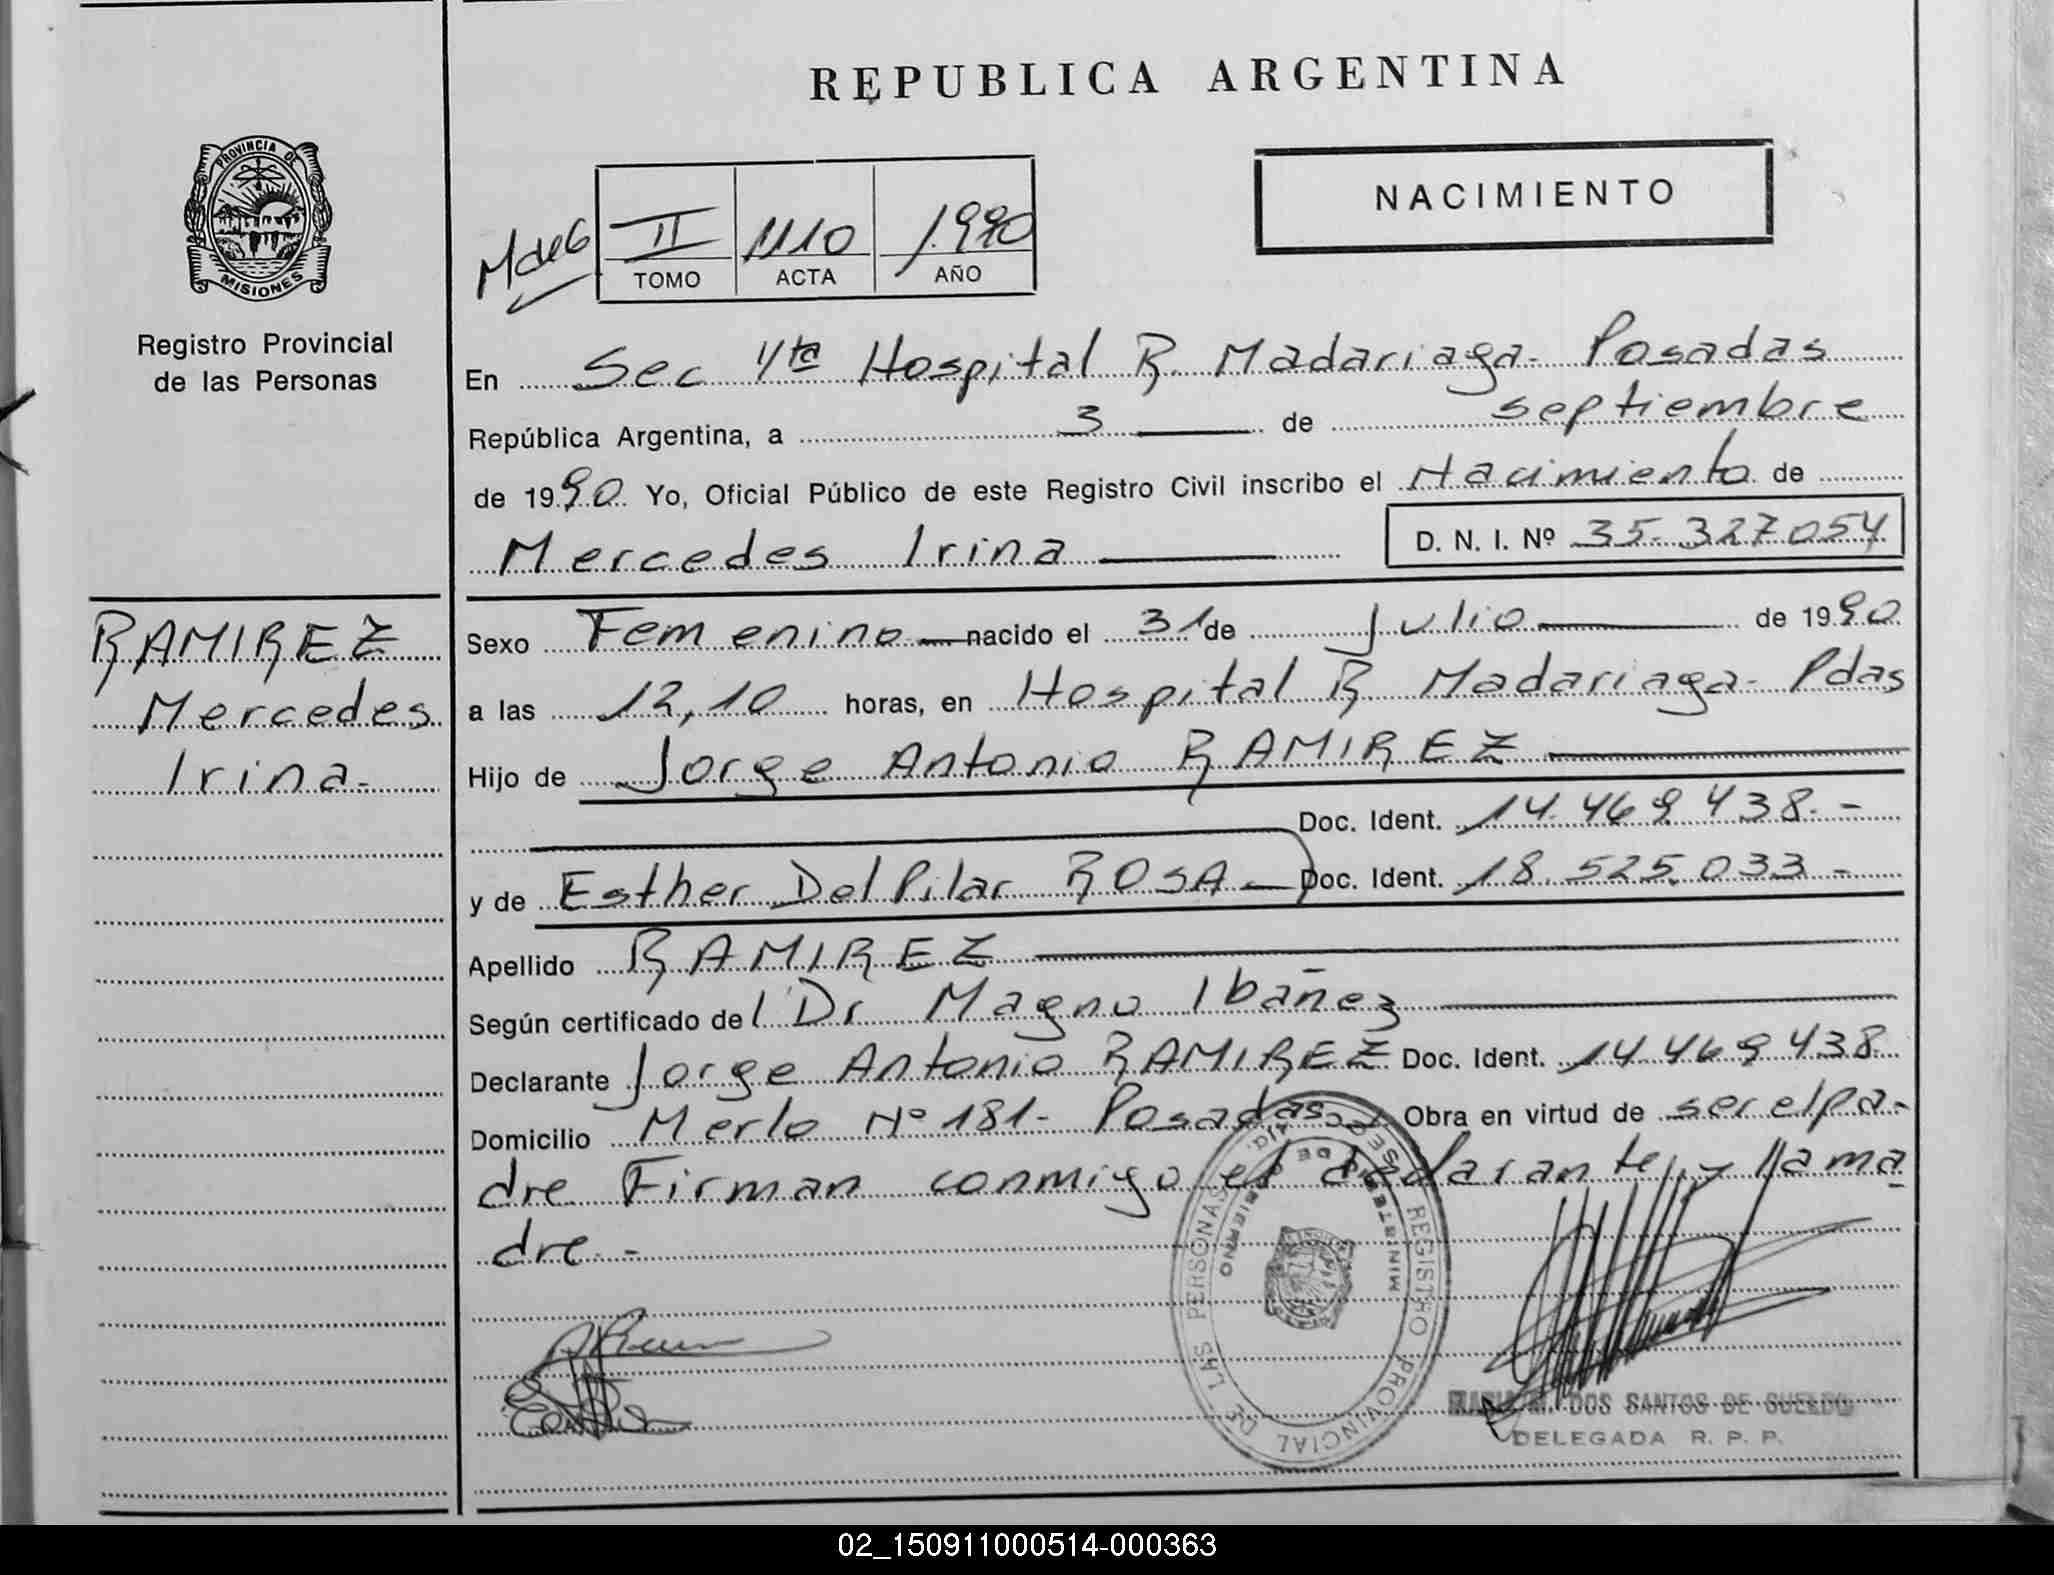 REPUBLICA ARGENTINA
PROVINCIA DE
MISIONES
Registro Provincial
de las Personas
NACIMIENTO
II 1110 1.990
TOMO ACTA AÑO
En Sec 4ta Hospital R. Madariaga - Posadas
República Argentina, a 3 de septiembre
de 1990. Yo, Oficial Público de este Registro Civil inscribo el Nacimiento de
Mercedes Irina D. N. I. Nº 35.327054
RAMIREZ
Mercedes
Irina-
Sexo Femenino nacido el 31 de Julio de 1990.
a las 12,10 horas, en Hospital R Madariaga - Pdas
Hijo de Jorge Antonio RAMIREZ
Doc. Ident. 14.469.438.-
y de Esther Del Pilar ROSA - Doc. Ident. 18.525.033 -
Apellido RAMIREZ
Según certificado del Dr Magno Ibañez
Declarante Jorge Antonio RAMIREZ Doc. Ident. 14.469.438.
Domicilio Merlo Nº 181 - Posadas Obra en virtud de ser el pa-
dre Firman conmigo el declarante y la ma
dre. -
REGISTRO PROVINCIAL DE LAS PERSONAS
MINISTERIO DE GOBIERNO
DOS SANTOS DE SUELDO
DELEGADA R. P. P.
02_150911000514-000363